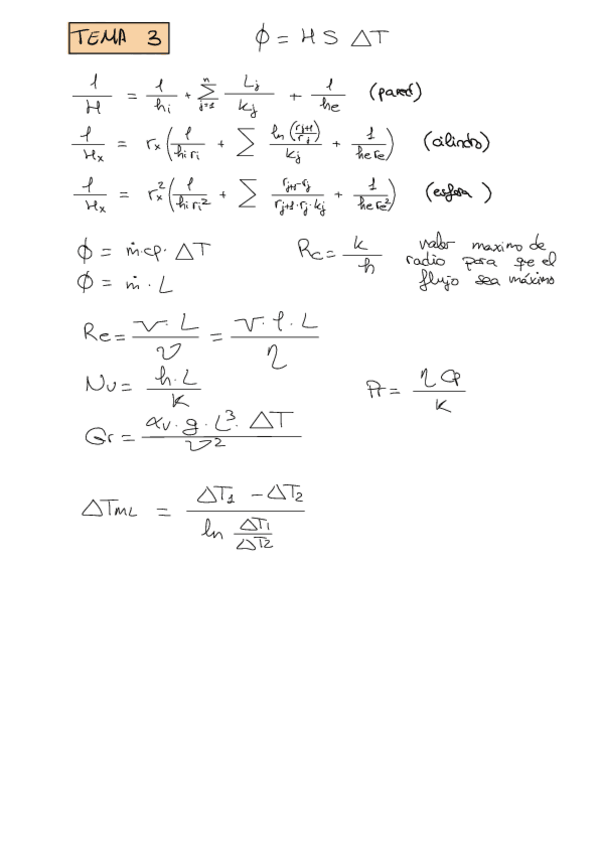 TEMA 3
ϕ = H S ΔT
1/H = 1/hi + Σ_{j=1}^{n} Lj/kj + 1/he (pared)
1/Hx = rx (1/(hi ri) + Σ ln(rj+1/rj)/kj + 1/(he re)) (cilindro)
1/Hx = rx² (1/(hi ri²) + Σ (rj+1-rj)/(rj+1·rj·kj) + 1/(he re²)) (esfera)
ϕ = ṁ·cp·ΔT
ϕ = ṁ · L
Rc = k/h valor maximo de
radio para qe el
flujo sea máximo
Re = v·L/ν = v·ρ·L/η
Nu = h·L/k
Pr = η Cp/k
Gr = αv·g·L³·ΔT/ν²
ΔTML = (ΔT1 - ΔT2)/(ln ΔT1/ΔT2)